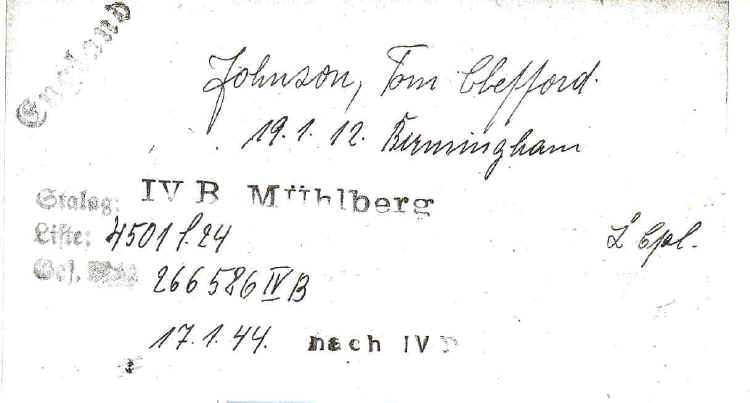 England
Johnson, Tom Cliefford.
19.1.12. Birmingham
Stalag: IV B Mühlberg
Liste: 4501 f. 24
L' Cpl.
Gef. 266586 IV B
17.1.44. nach IV D